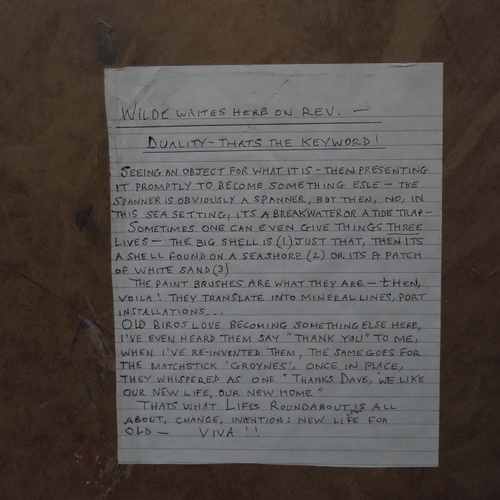 WILDE WRITES HERE ON REV. —
DUALITY - THATS THE KEYWORD!
SEEING AN OBJECT FOR WHAT IT IS - THEN PRESENTING
IT PROMPTLY TO BECOME SOMETHING ESLE - THE
SPANNER IS OBVIOUSLY A SPANNER, BUT THEN, NO, IN
THIS SEA SETTING, ITS A BREAKWATER OR A TIDE TRAP -
SOMETIMES ONE CAN EVEN GIVE THINGS THREE
LIVES - THE BIG SHELL IS (1) JUST THAT, THEN ITS
A SHELL FOUND ON A SEASHORE (2) OR ITS A PATCH
OF WHITE SAND (3)
THE PAINT BRUSHES ARE WHAT THEY ARE - THEN,
VOILA! THEY TRANSLATE INTO MINERAL LINES, PORT
INSTALLATIONS...
OLD BIROS LOVE BECOMING SOMETHING ELSE HERE,
I'VE EVEN HEARD THEM SAY "THANK YOU" TO ME,
WHEN I'VE RE-INVENTED THEM, THE SAME GOES FOR
THE MATCHSTICK 'GROYNES', ONCE IN PLACE,
THEY WHISPERED AS ONE "THANKS DAVE, WE LIKE
OUR NEW LIFE, OUR NEW HOME"
THATS WHAT LIFES ROUNDABOUT IS ALL
ABOUT, CHANGE, INVENTION: NEW LIFE FUR
OLD — VIVA!!